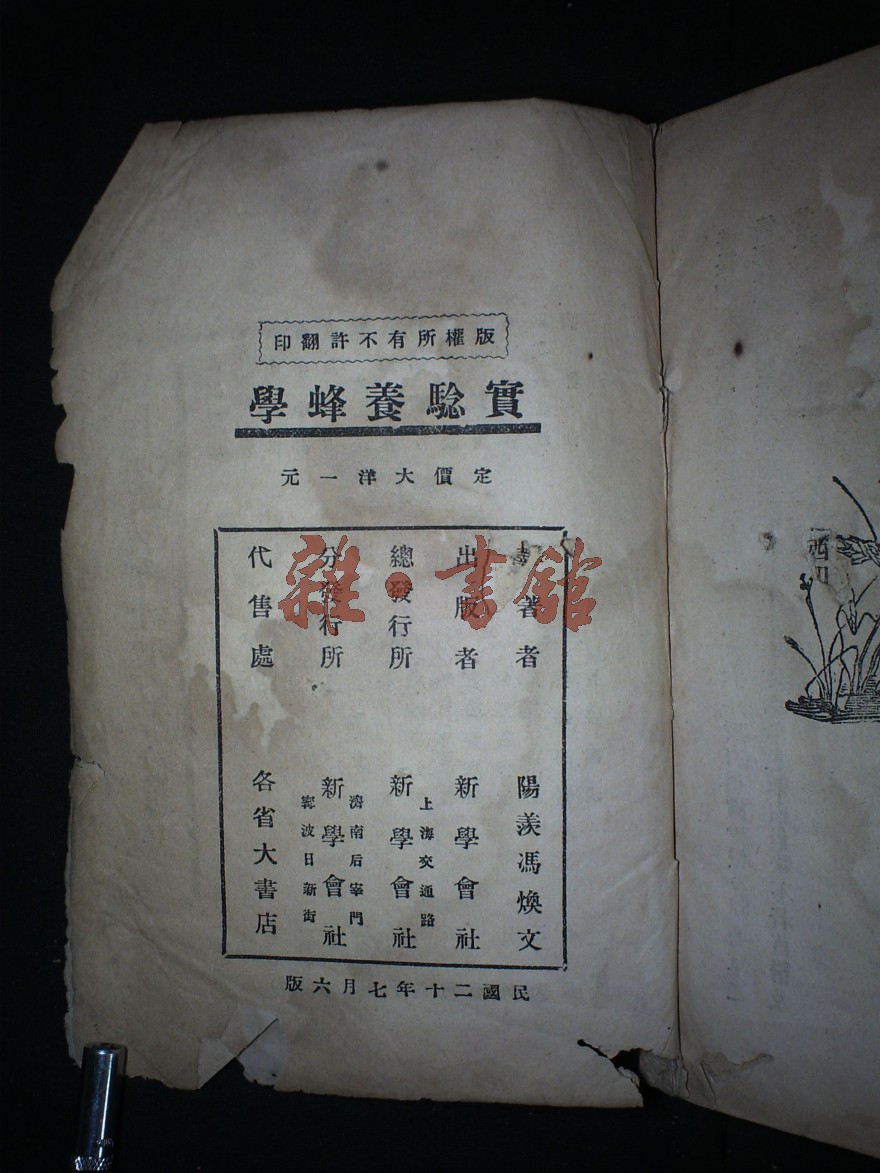 版權所有不許翻印
實驗養蜂學
定價大洋一元
著者 陽羨馮煥文
出版者 新學會社
總發行所 上海交通路 新學會社
分發行所 濟南后宰門 寗波日新街 新學會社
代售處 各省大書店
民國二十年七月六版
雜·書館
西